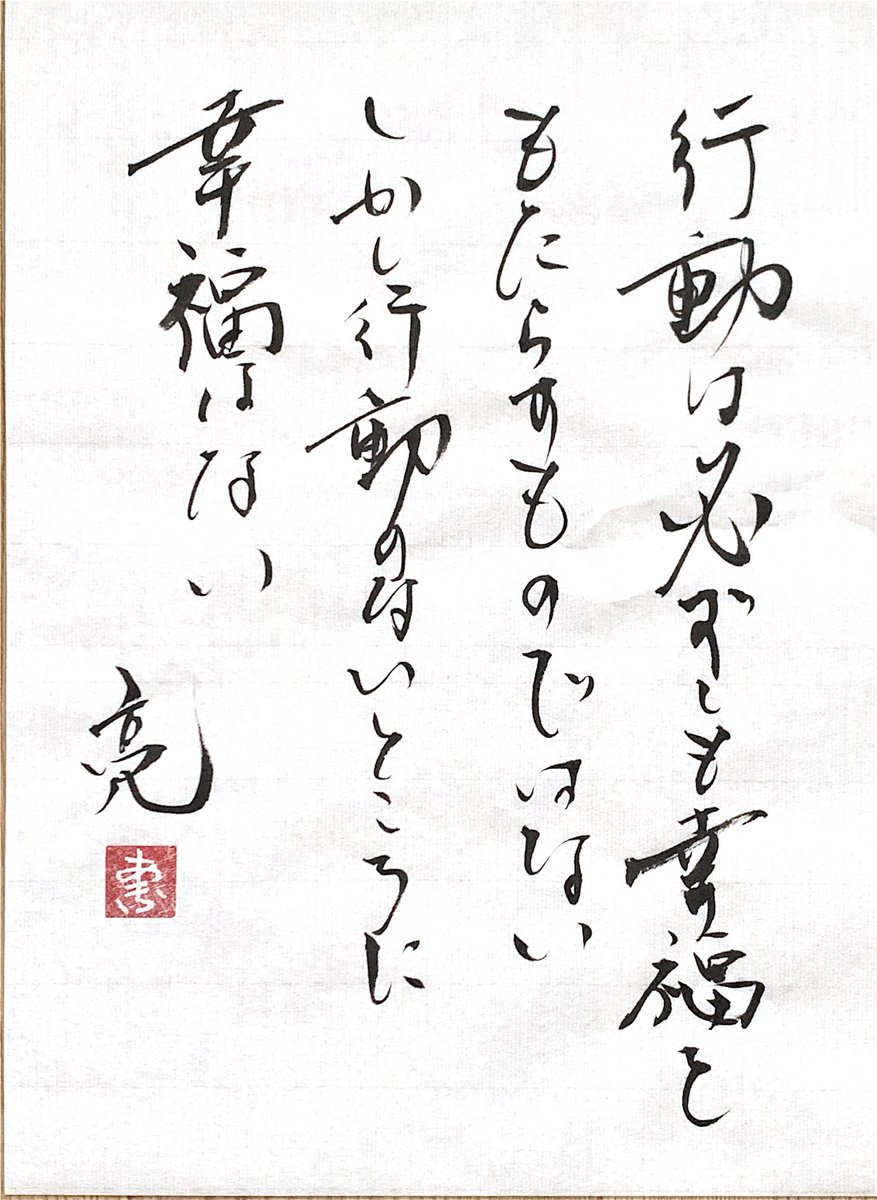 行動は必ずしも幸福を
もたらすものではない
しかし行動のないところに
幸福はない
亮